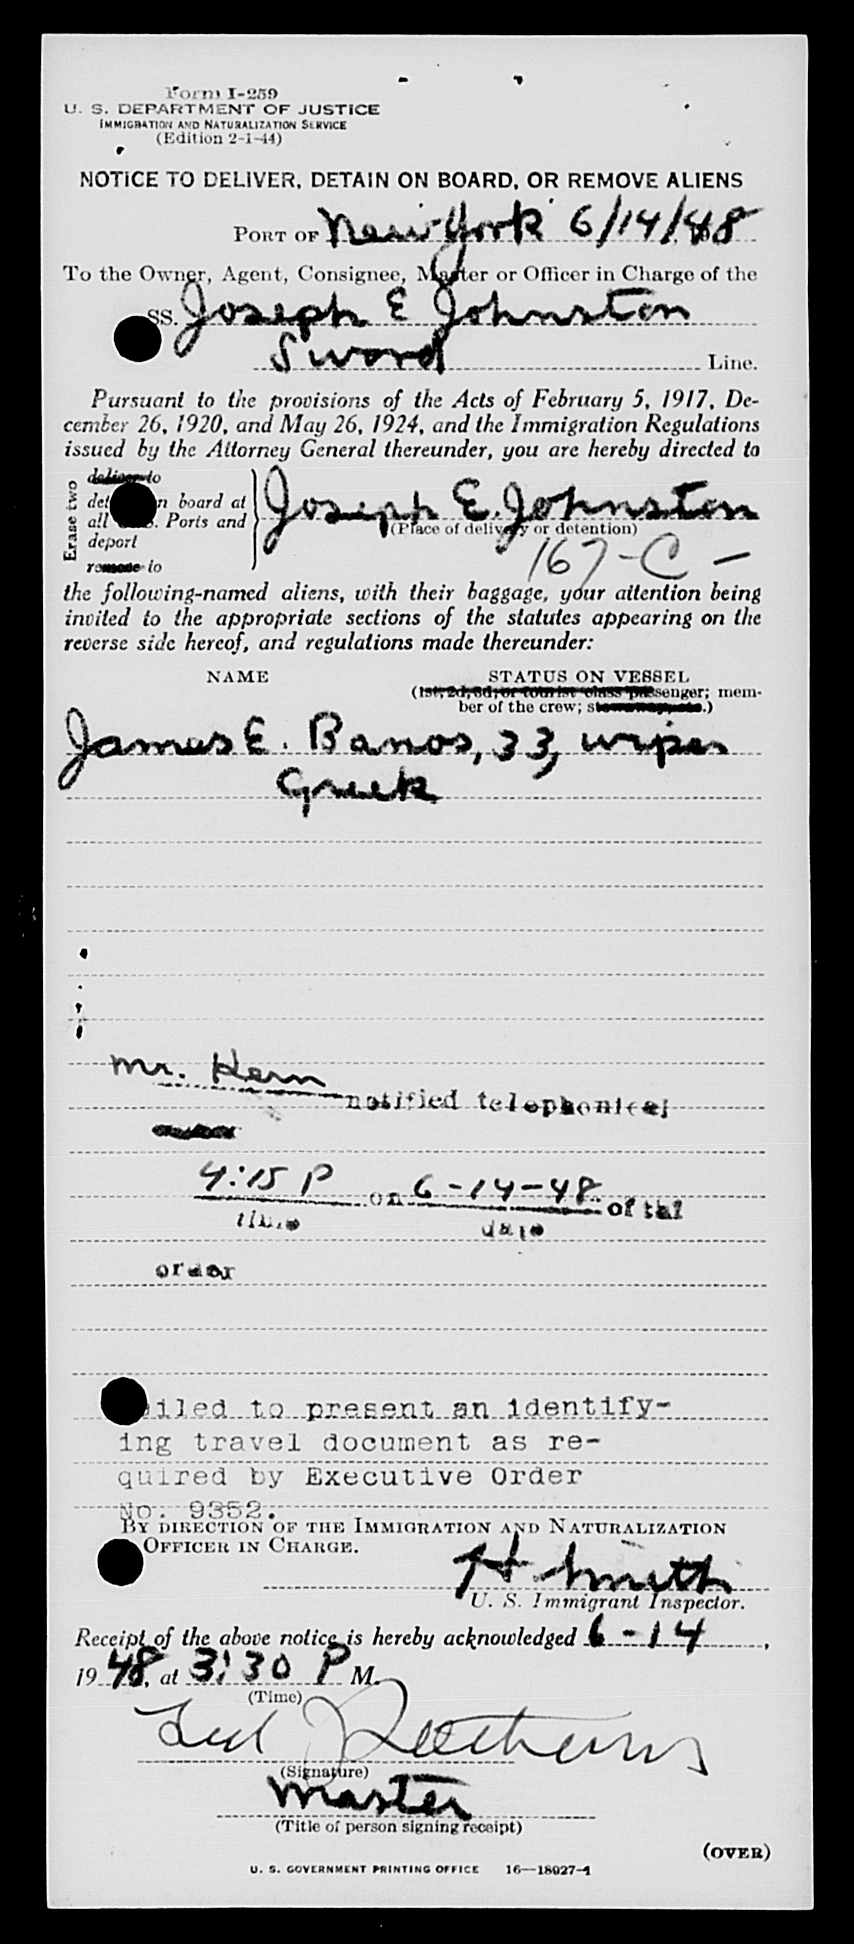 Form I-259
U. S. DEPARTMENT OF JUSTICE
IMMIGRATION AND NATURALIZATION SERVICE
(Edition 2-1-44)
NOTICE TO DELIVER, DETAIN ON BOARD, OR REMOVE ALIENS
PORT OF New York 6/14/48
To the Owner, Agent, Consignee, Master or Officer in Charge of the
SS. Joseph E Johnston
Sword Line.
Pursuant to the provisions of the Acts of February 5, 1917, De-
cember 26, 1920, and May 26, 1924, and the Immigration Regulations
issued by the Attorney General thereunder, you are hereby directed to
Erase two
deliver to
n board at
all . Ports and
deport
remove to
Joseph E. Johnston
(Place of delivery or detention)
167-C-
the following-named aliens, with their baggage, your attention being
invited to the appropriate sections of the statutes appearing on the
reverse side hereof, and regulations made thereunder:
NAME STATUS ON VESSEL
(1st, 2d, 3d, or tourist class passenger; mem-
ber of the crew; .)
James E. Banos, 33, wiper
Greek
Mr. Hern
notified telephonical
4:15 P on 6-14-48 of thl
time date
order
iled to present an identify-
ing travel document as re-
quired by Executive Order
No. 9352.
BY DIRECTION OF THE IMMIGRATION AND NATURALIZATION
OFFICER IN CHARGE.
H Smith
U. S. Immigrant Inspector.
Receipt of the above notice is hereby acknowledged 6-14,
1948, at 3:30 P M.
(Time)
(Signature)
Master
(Title of person signing receipt)
(OVER)
U. S. GOVERNMENT PRINTING OFFICE 16—18027-1